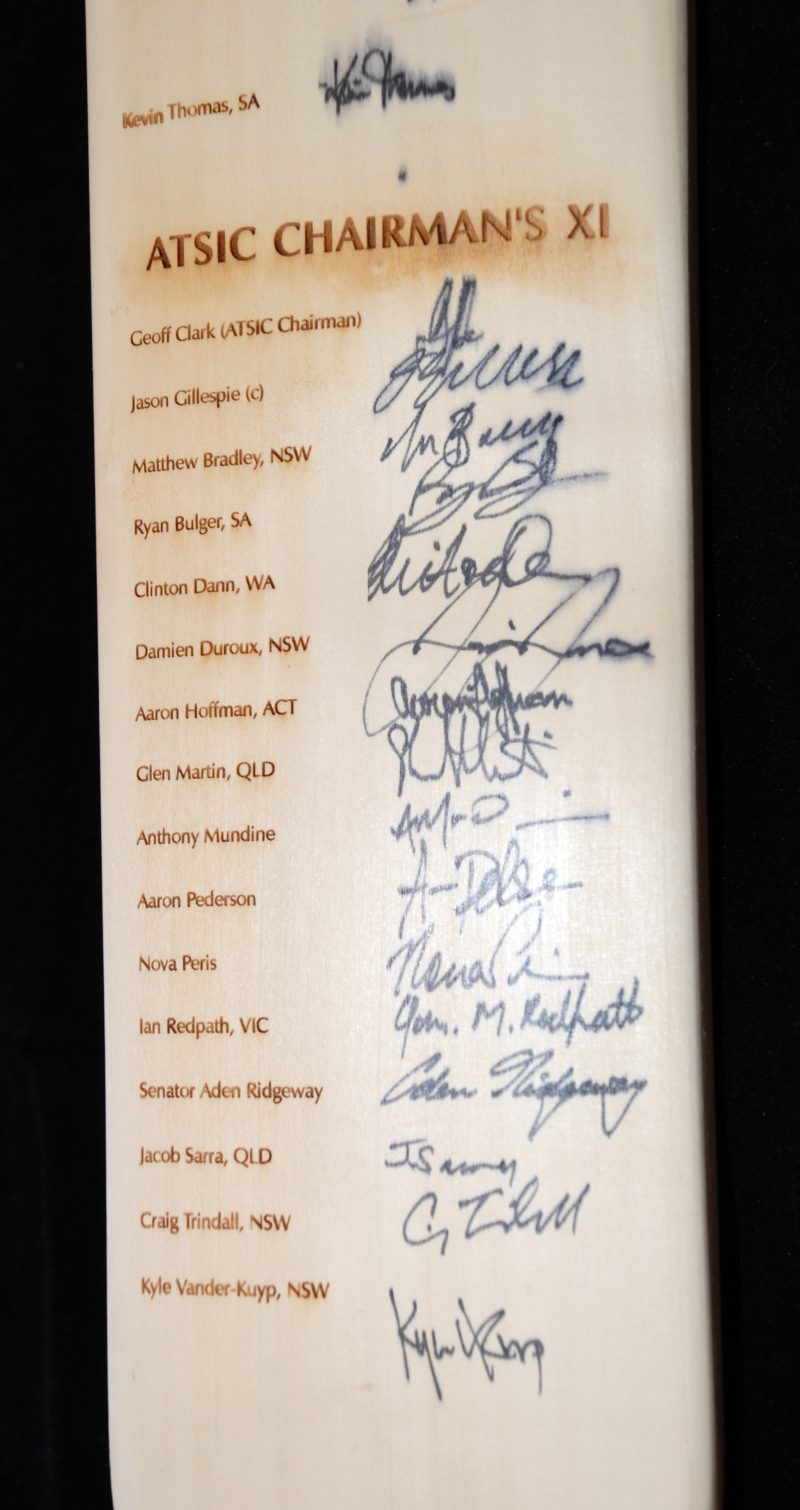 Kevin Thomas, SA Kevin Thomas
ATSIC CHAIRMAN'S XI
Geoff Clark (ATSIC Chairman)
Jason Gillespie (c)
Matthew Bradley, NSW
Ryan Bulger, SA
Clinton Dann, WA
Damien Duroux, NSW
Aaron Hoffman, ACT
Glen Martin, QLD
Anthony Mundine
Aaron Pederson
Nova Peris
Ian Redpath, VIC M. Redpath
Senator Aden Ridgeway Aden Ridgeway
Jacob Sarra, QLD
Craig Trindall, NSW
Kyle Vander-Kuyp, NSW